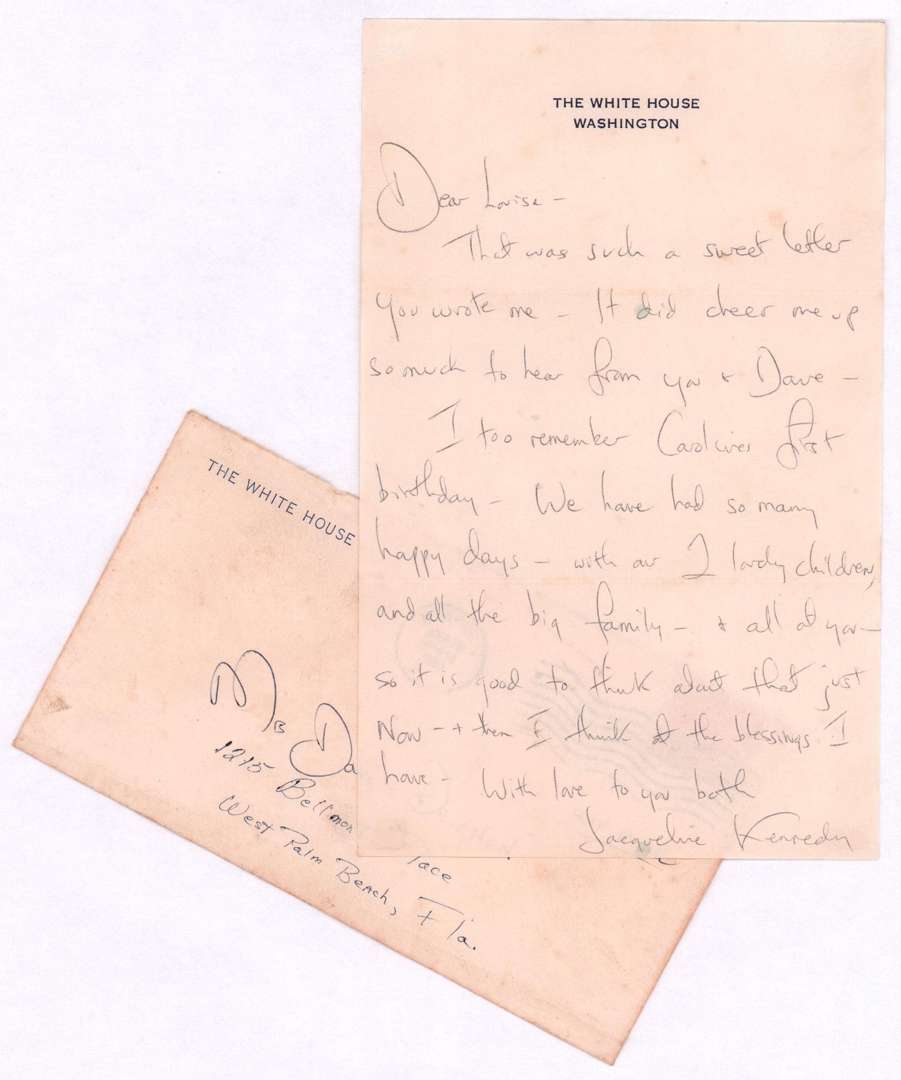 THE WHITE HOUSE
WASHINGTON
Dear Louise -
That was such a sweet letter
you wrote me - It did cheer me up
so much to hear from you & Dave -
I too remember Carolines first
birthday - We have had so many
happy days - with our 2 lovely children,
and all the big family - & all of you -
so it is good to think about that just
Now - & then I think of the blessings I
have - With love to you both
Jacqueline Kennedy
THE WHITE HOUSE
Da
1215
West Palm Beach, Fla.